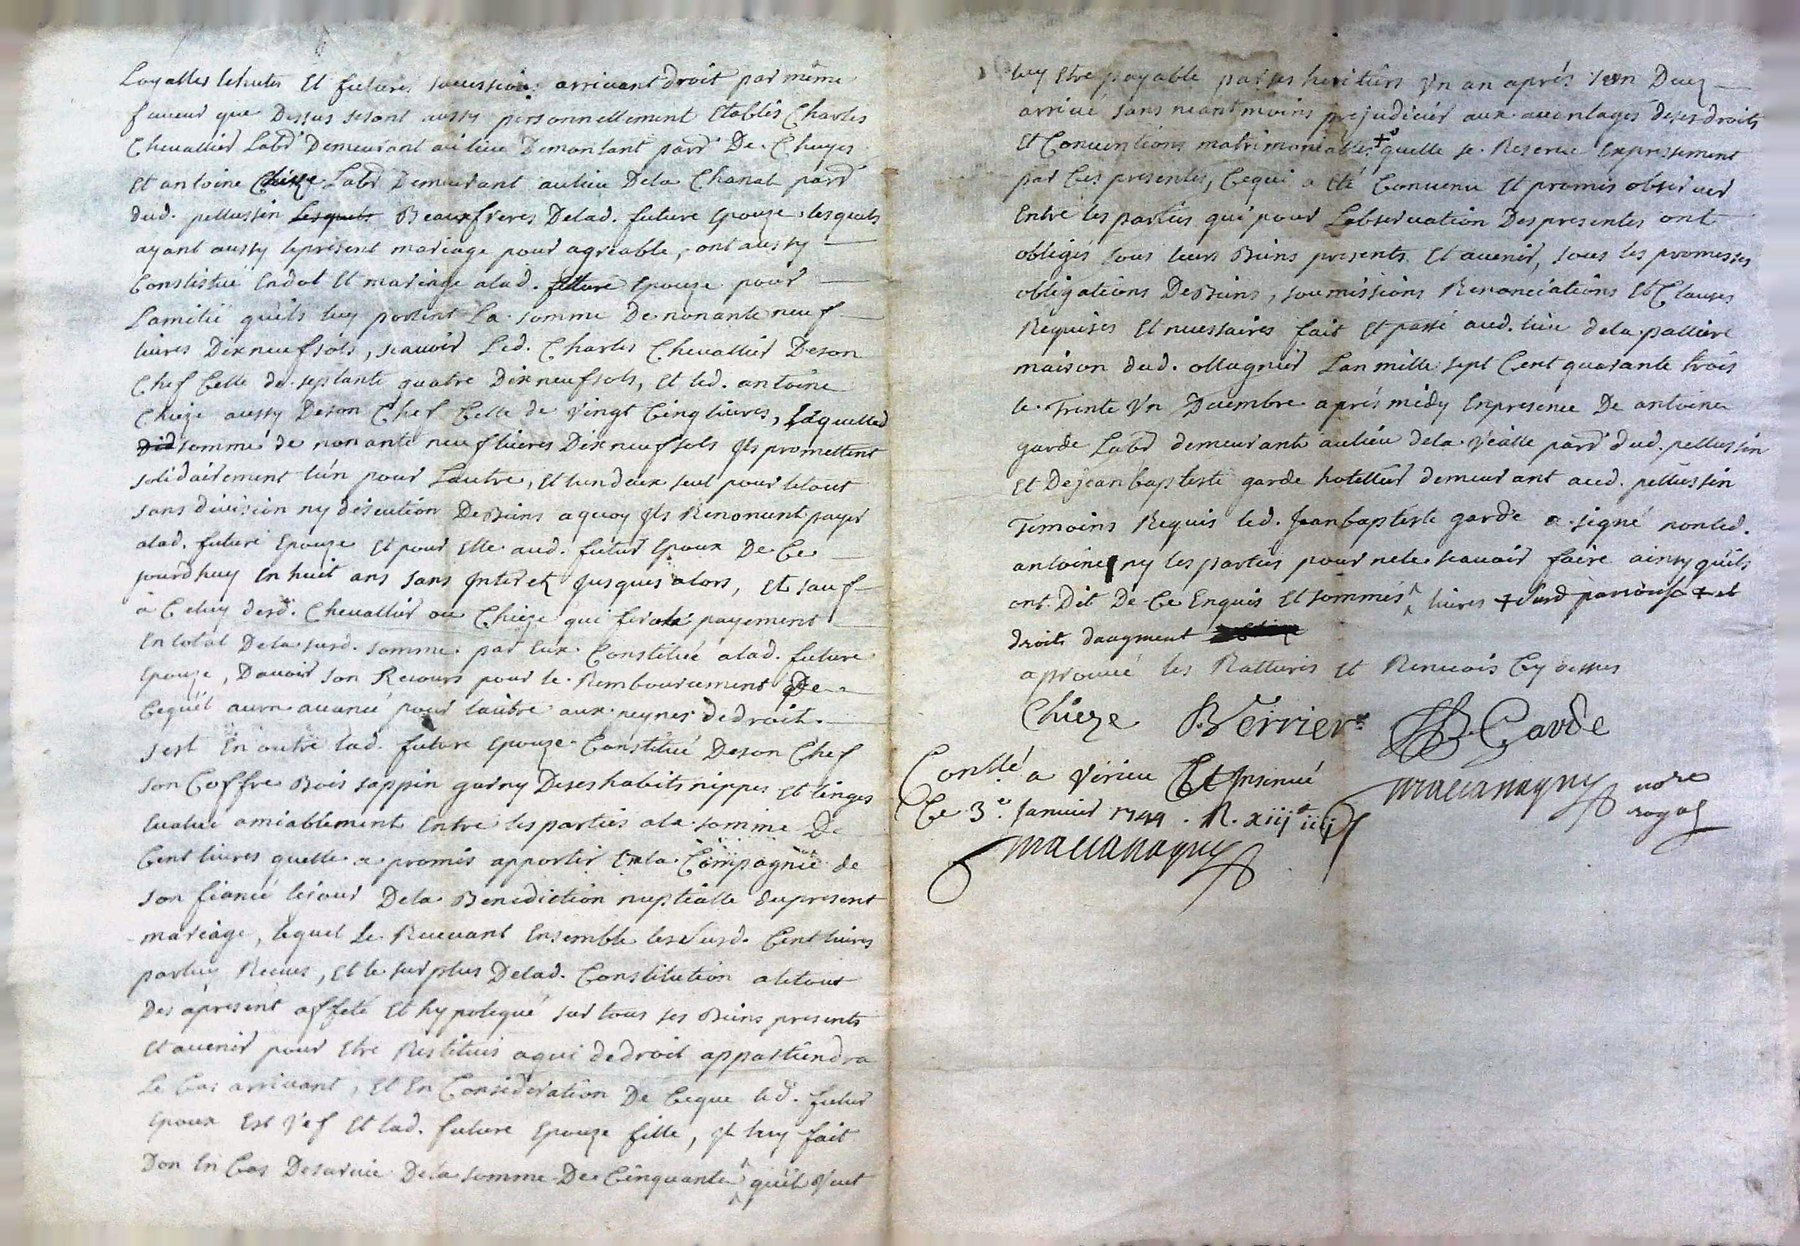 Loyalles lehutes Et futures sucession arrivant droit par même
faveur que Dessus sesont aussy personnellement Etablis Charles
Chevallier Labr Demeurant aulieu Demontant parr De Chuyes
Et antoine Chieze Labr Demeurant aulieu Dela Chanal parr
dud. pellussin lesquels Beauxfreres Delad. future Epouze, lesquels
ayant aussy leprésent mariage pour agréable, ont aussy
Constistué Endot Et mariage alad. future Epouze pour
Lamitié quils luy portent La somme De nonante neuf
livres Dixneufsols, scavoir Led. Charles Chevallier Deson
Chef Celle de septante quatre Dixneufsols, Et led. antoine
Chieze aussy Deson Chef Celle de vingt Cinq livres, Laquelle
somme de nonante neuf livres Dixneufsols Ils promettent
solidairement lun pour Lautre, Et lundeux seul pour letout
sans division ny discution DeBiens aquoy Ils Renoncent payer
alad. future Epouze Et pour Elle aud. futur Epoux De Ce
jourdhuy En huit ans sans Interetz Jusques alors, Et sauf
à Celuy desd. Chevallier ou Chieze qui fera le payement
En total Dela susd. somme par Eux Constitué alad. future
Epouze, Davoir son Recours pour le Remboursement De
Cequil aura avancé pour lautre aux peynes dedroit.
sest En outre lad. future Epouze Constitué Deson Chef
son Coffre Bois sappin garny Deses habits nippes Et linges
Evalué amiablement Entre les parties ala somme De
Cent livres quelle a promis apporter En la Compagnie de
son fiancé lejour Dela Benediction nuptialle Dupresent
mariage, lequel Le Recevant Ensemble les susd. Cent livres
parluy Recues, Et le surplus Delad. Constitution aletout
Des apresent affeté Et hypotequé sur tous ses Biens presents
Et avenir pour Etre Restitués aqui dedroit appartiendra
Le Cas arrivant, Et En Considération De Ceque led. futur
Epoux Est vef Et lad. future Epouze fille, Il luy fait
Don En Cas Desurvie Dela somme De Cinquante ^ quil veut
luy Etre payable par ses heritiers Un an après son Decez
arrivé sans neantmoins prejudicier aux avantages deses droits
Et Conventions matrimoniables + quelle se Reserve Expressement
par Ces presentes, Cequi a Eté Convenu Et promis observer
Entre les parties qui pour Lobservation Des presentes ont
obligés sous leurs Biens presents Et avenir, sous les promesses
obligations DeBiens, soumissions Renonciations Et Clauses
Requises Et necessaires fait Et passé aud. lieu dela palliere
maison dud. ollagnier Lan mille sept Cent quarante trois
le Trente Un Decembre après midy Enpresence De antoine
garde Labr demeurant aulieu dela vialle parr dud. pellussin
Et Dejean baptiste garde hotellier demeurant aud. pellussin
Temoins Requis led. Jeanbaptiste garde a signé nonled.
antoine ny les parties pour nele scavoir faire ainsy quils
ont Dit De Ce Enquis Et sommés ^ livres + et
droits daugment
aprouvé les Ratturés Et Renvois Cy dessus
Chieze Verrier JB Garde
Conllé a Virieu Et Insinué
Ce 3.e Janvier 1744. R. xiij s iiij d
maccanaguy nore
royal
maccanaguy